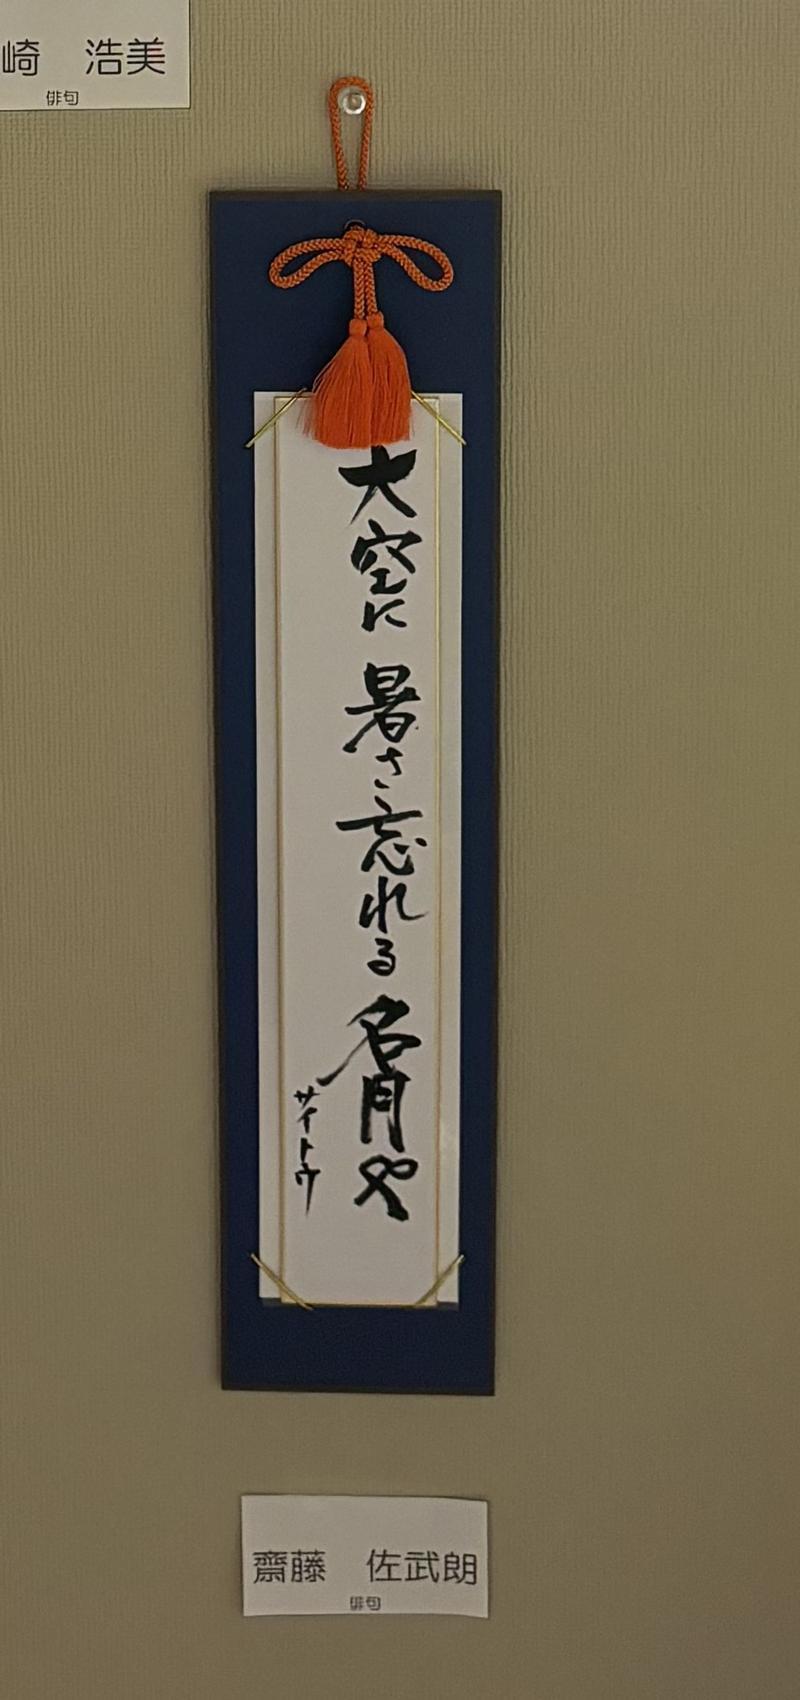 崎 浩美
俳句
大空に 暑さ忘れる 名月や
サイトウ
齋藤 佐武朗
俳句